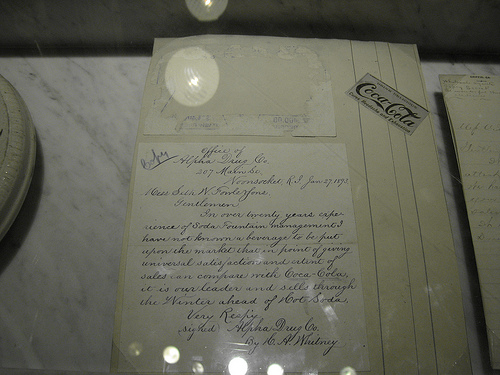 Coca-Cola
Copy
Office of
Alpha Drug Co.
207 Main St.
Woonsocket, R.I. Jan 27, 1893.
Mess Seth W. Fowle & Sons
Gentlemen
In over twenty years expe-
rience of Soda Fountain management I
have not known a beverage to be put
upon the market that in point of giving
universal satisfaction and extent of
sales can compare with Coca-Cola,
it is our leader and sells through
the Winter ahead of Hot Soda.
Very Respy.
signed Alpha Drug Co.
By H. A. Whitney